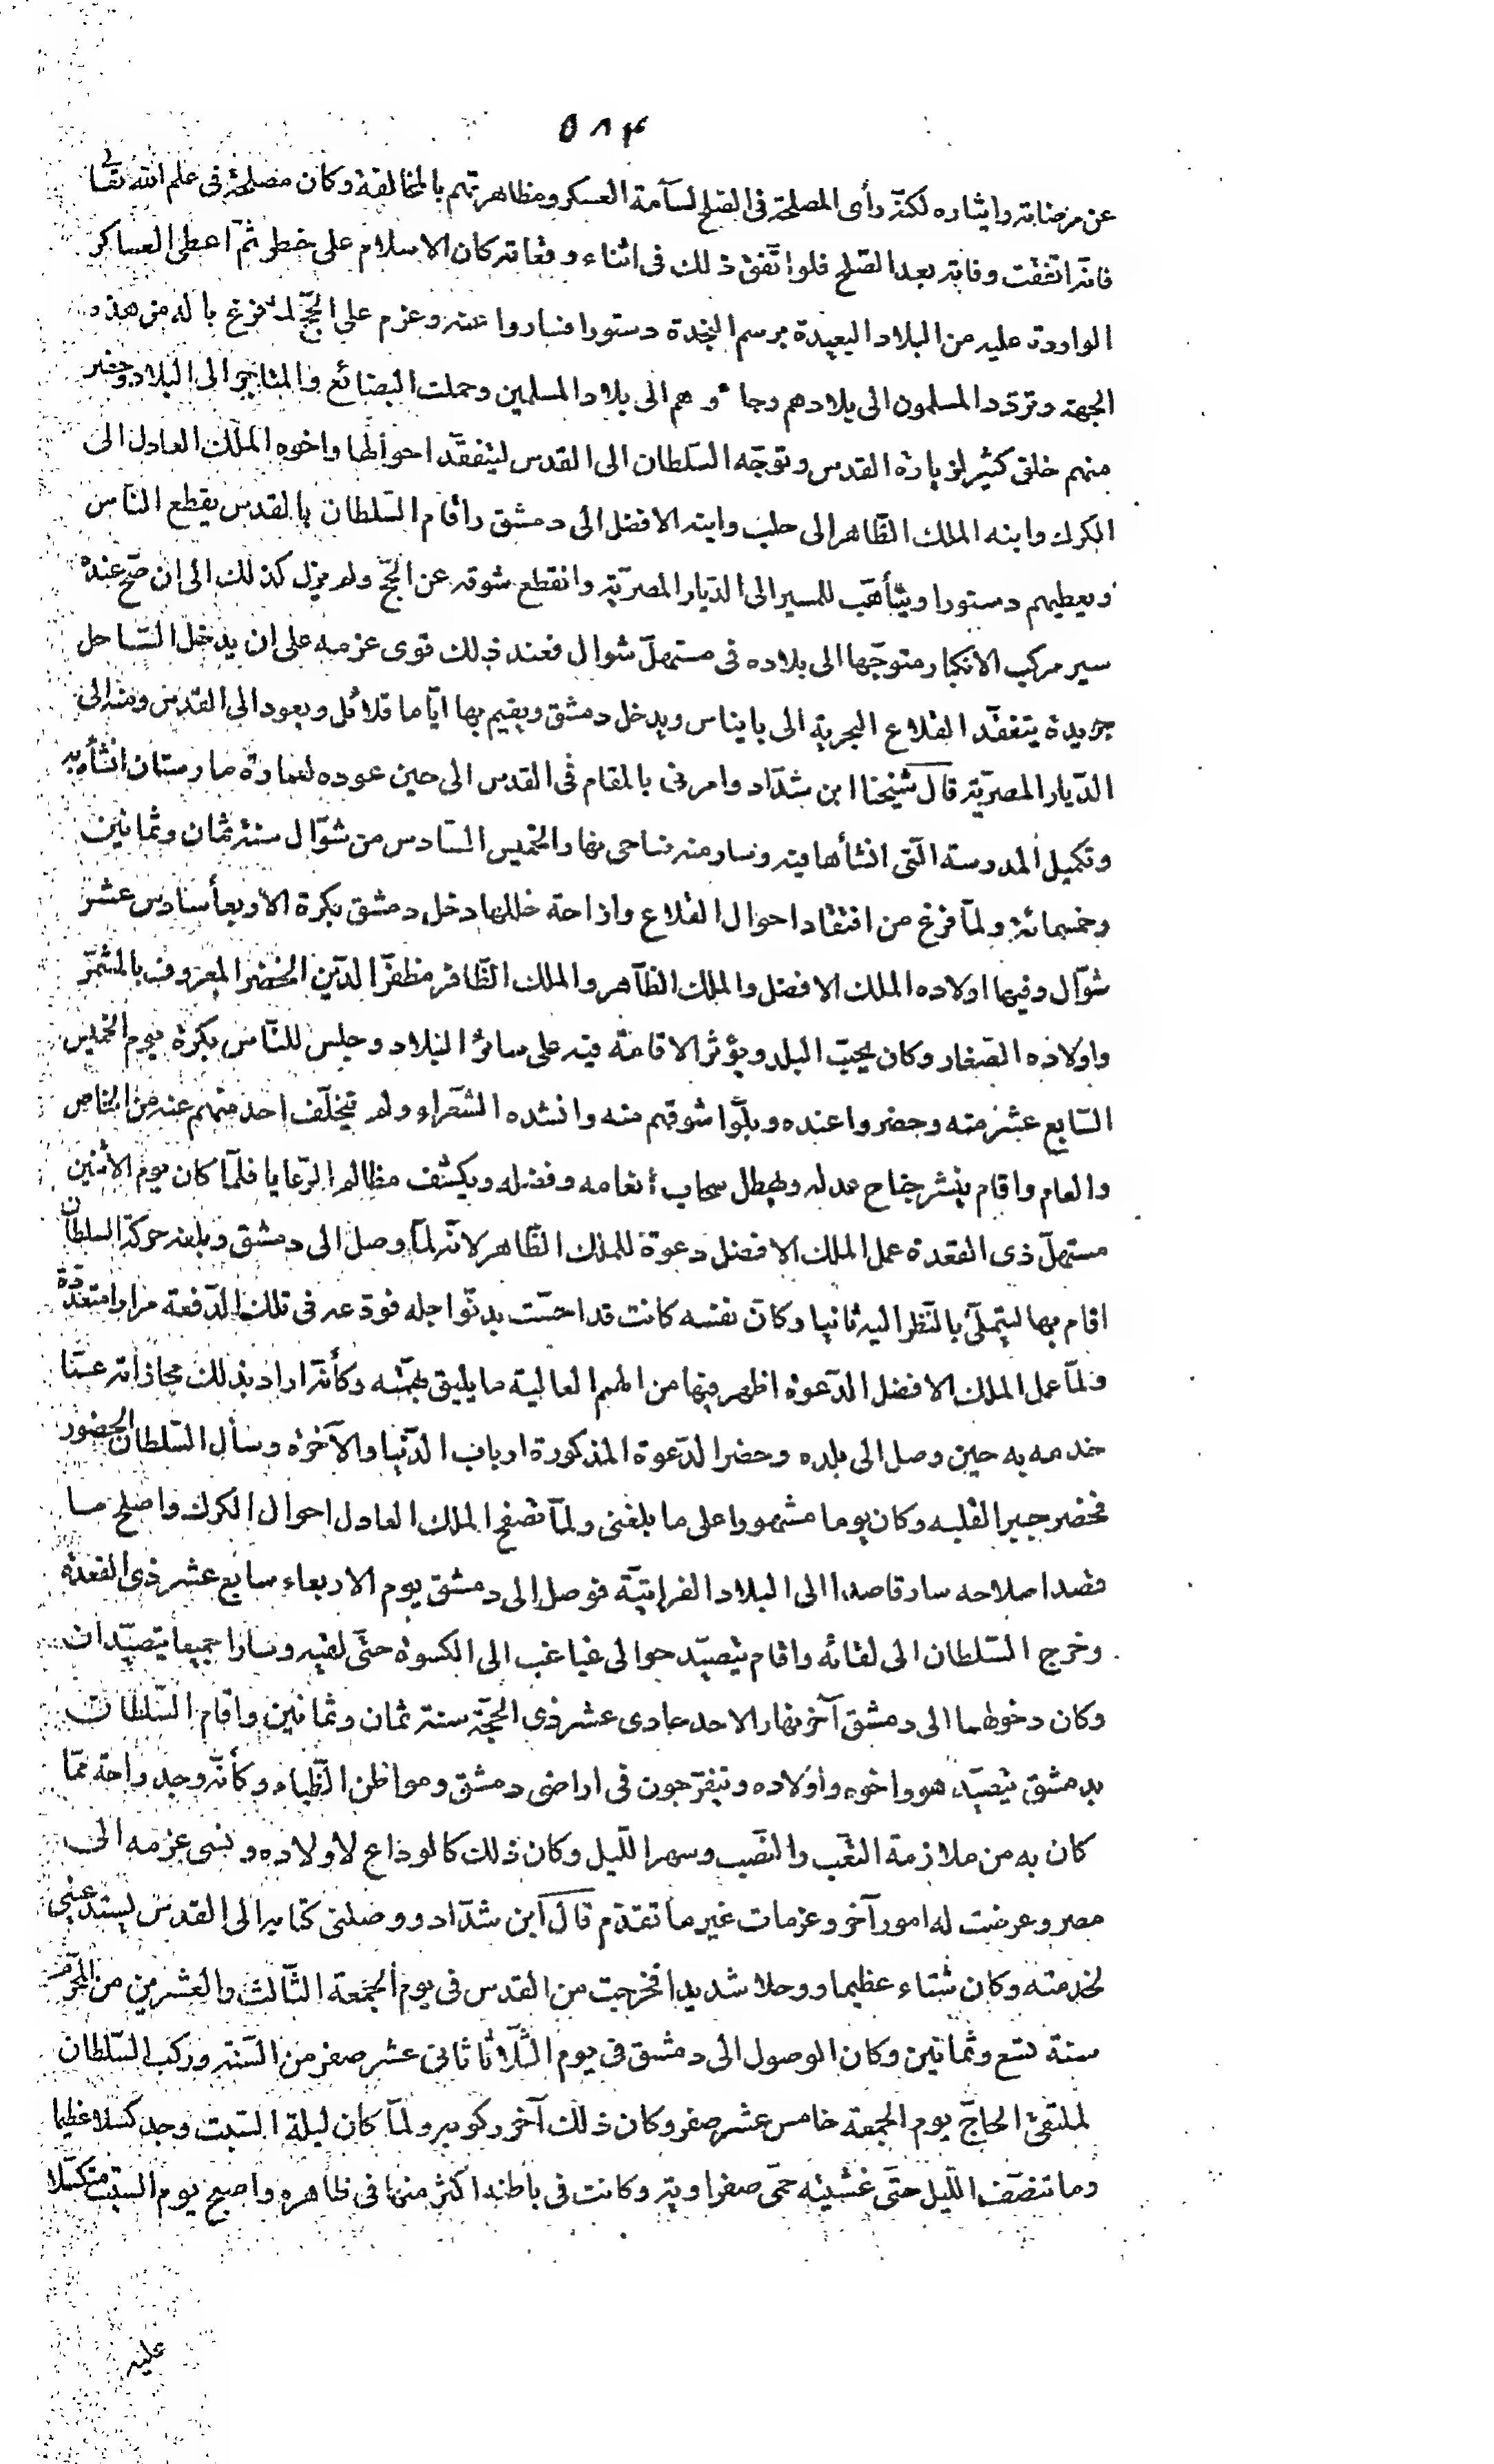 ٥٨٤
عن مرضاته وايثاره لكنّه رأى المصلحة فى الصّلح لسآمة العسكر ومظاهرتهم بالمخالفة وكان مصلحة فى علم الله تعالى
فانّه اتّفقت وفاته بعد الصّلح فلو اتّفق ذلك فى اثناء وقعاته كان الاسلام على خطر ثمّ اعطى العساكر
الواردة عليه من البلاد البعيدة برسم النجدة دستورا فساروا عنه وعزم على الحجّ لمّا فرغ باله من هذه
الجهة وتردّد المسلمون الى بلادهم وجاؤ وهم الى بلاد المسلمين وحملت البضائع والمتاجر الى البلاد وحضر
منهم خلق كثير لزيارة القدس وتوجّه السّلطان الى القدس ليتفقّد احوالها واخوه الملك العادل الى
الكرك وابنه الملك الظّاهر الى حلب وابنه الافضل الى دمشق واقام السّلطان بالقدس يقطع النّاس
ويعطيهم دستورا ويتأهّب للمسير الى الدّيار المصريّة وانقطع شوقه عن الحجّ ولم يزل كذلك الى ان صحّ عنده
سير مركب الانكتار متوجّها الى بلاده فى مستهلّ شوال فعند ذلك قوى عزمه على ان يدخل السّاحل
جريدة يتفقّد القلاع البحرية الى بانياس ويدخل دمشق ويقيم بها ايّاما قلائل ويعود الى القدس ومنه الى
الدّيار المصريّة قال شيخنا ابن شدّاد وامرنى بالمقام فى القدس الى حين عوده لعمارة مارستان انشأه به
وتكميل المدرسة الّتى انشأها فيه وسار منه ضاحى نهار الخميس السّادس من شوّال سنة ثمان وثمانين
وخمسمائة ولمّا فرغ من افتقاد احوال القلاع وازاحة خللها دخل دمشق بكرة الاربعأ سادس عشر
شوّال وفيها اولاده الملك الافضل والملك الظّاهر والملك الظّافر مظفّر الدّين الخضر المعروف بالمشمّر
واولاده الصّغار وكان يحبّ البلد ويؤثر الاقامة فيه على سائر البلاد وجلس للنّاس بكرة يوم الخميس
السّابع عشر منه وحضروا عنده وبلّوا شوقهم منه وانشده الشّعراء ولم يتخلّف احد منهم عنه من الخاص
والعام واقام ينشر جناح عدله ويهطل سحاب انعامه وفضله ويكشف مظالم الرّعايا فلمّا كان يوم الاثنين
مستهلّ ذى القعدة عمل الملك الافضل دعوة للملك الظّاهر لانّه لمّا وصل الى دمشق وبلغه حركة السلطان
اقام بها ليتملّى بالنّظر اليه ثانيا وكانّ نفسه كانت قد احسّت بدنوّ اجله فودّعه فى تلك الدّفعة مرارا متعدّدة
ولمّا عمل الملك الافضل الدّعوة اظهر فيها من الهمم العالية ما يليق بهمّته وكأنّه اراد بذلك مجازاته عمّا
خدمه به حين وصل الى بلده وحضر الدّعوة المذكورة ارباب الدّنيا والآخرة وسأل السّلطان الحضور
فحضر جبرا لقلبه وكان يوما مشهودا على ما بلغنى ولمّا تصفح الملك العادل احوال الكرك واصلح ما
قصد اصلاحه سار قاصدا الى البلاد الفراتيّة فوصل الى دمشق يوم الاربعاء سابع عشر ذى القعدة
وخرج السّلطان الى لقائه واقام يتصيّد حوالى غباغب الى الكسوة حتّى لقيه وسارا جميعا يتصيّدان
وكان دخولهما الى دمشق آخر نهار الاحد حادى عشر ذى الحجّة سنة ثمان وثمانين واقام السّلطان
بدمشق يتصيّد هو واخوه واولاده ويتفرّجون فى اراضى دمشق ومواطن الظّباء وكأنّه وجد راحة ممّا
كان به من ملازمة التّعب والنّصب وسهر اللّيل وكان ذلك كالوداع لاولاده ونسى عزمه الى
مصر وعرضت له امور آخر وعزمات غير ما تقدّم قال ابن شدّاد ووصلنى كتابه الى القدس يستدعينى
لخدمته وكان شتاء عظيما ووحلا شديدا فخرجت من القدس فى يوم الجمعة الثّالث والعشرين من المحرّم
سنة تسع وثمانين وكان الوصول الى دمشق فى يوم الثّلاثا ثانى عشر صفر من السّنة وركب السّلطان
لملتقى الحاجّ يوم الجمعة خامس عشر صفر وكان ذلك آخر ركوبه ولمّا كان ليلة السّبت وجد كسلا عظيما
وما تنصّف اللّيل حتّى غشيته حمّى صفراويّة وكانت فى باطنه اكثر منها فى ظاهره واصبح يوم السّبت متكسّلا
عليه